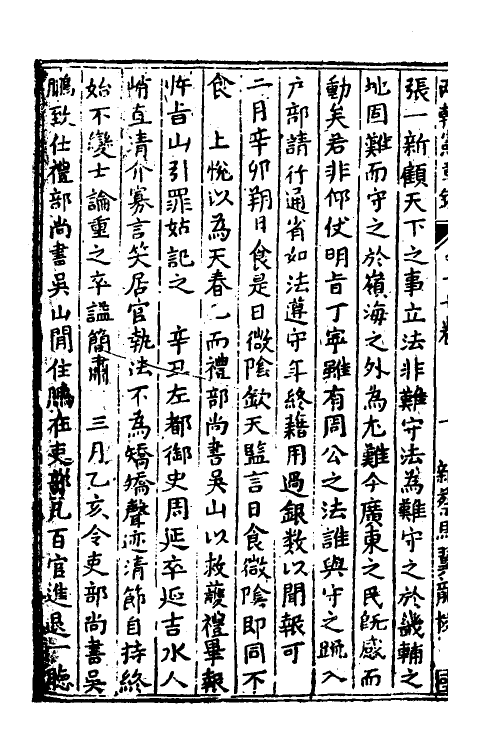 兩朝憲章錄
張一新顧天下之事立法非難守法為難守之於畿輔之
地固難而守之於嶺海之外為尤難今廣東之民既感而
動矣君非仰仗明旨丁寧雖有周公之法誰與守之疏入
户部請行通省如法遵守年終藉用過銀数以聞報可
二月辛卯朔日食是日微陰欽天監言日食微陰即同不
食　上悅以為天眷乙而禮部尚書吳山以救䕶禮畢報
忤旨山引罪姑記之　辛丑左都御史周延卒延吉水人
悄直清介寡言笑居官執法不為矯矯聲迹清節自持終
始不變士論重之卒謚簡肅　三月乙亥令吏部尚書吳
鵬致仕禮部尚書吳山閒住鵬在吏部凡百官進退一聽